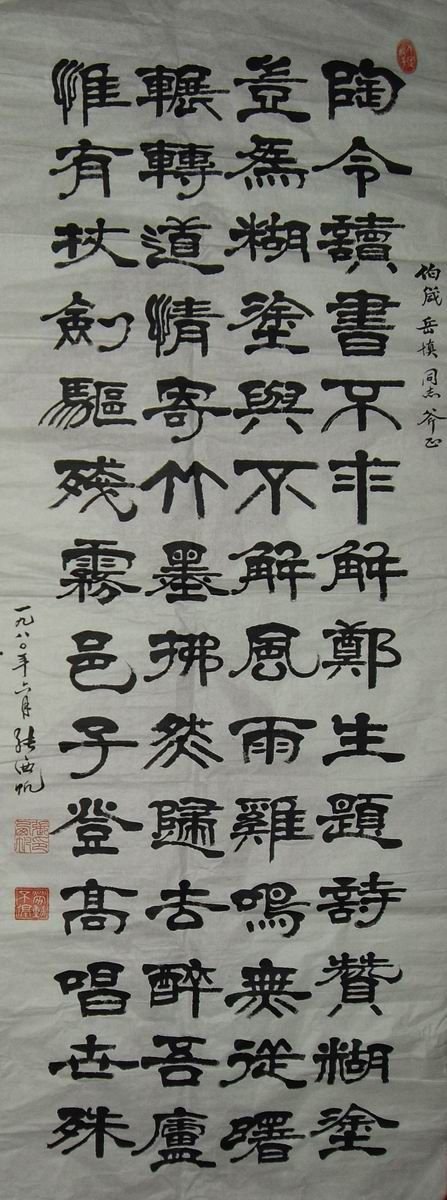 伯箴岳慎同志斧正
陶令讀書不求解鄭生題詩贊糊塗
豈為糊塗與不解風雨雞鳴無從曙
輾轉道情寄竹墨拂然歸去醉吾廬
惟有杖劍驅殘霧邑子登高唱世殊
一九八〇年六月張